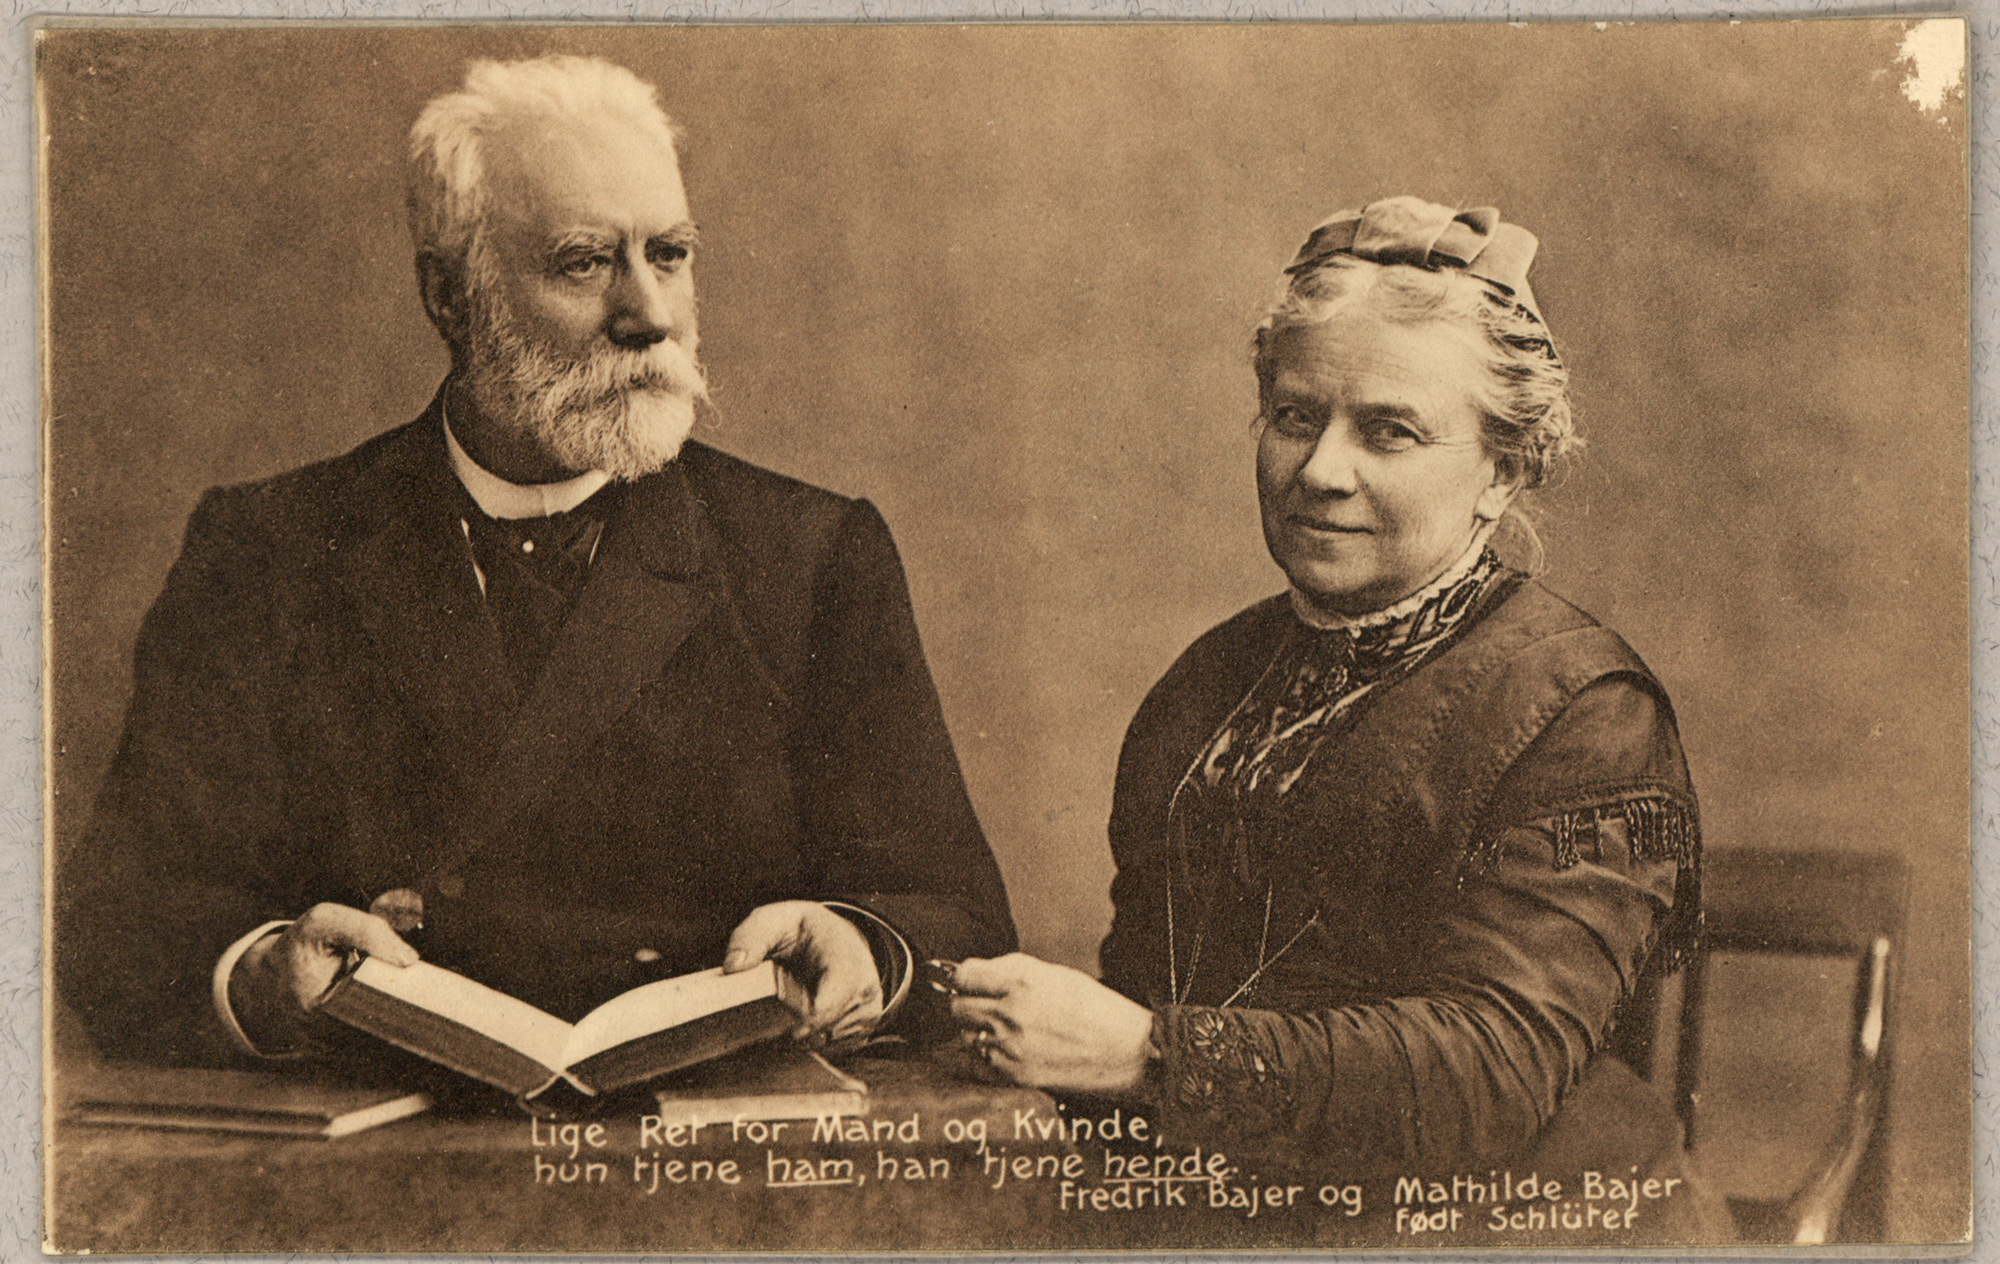 Lige Ret for Mand og Kvinde,
hun tjene ham, han tjene hende.
Fredrik Bajer og Mathilde Bajer
født Schlüter